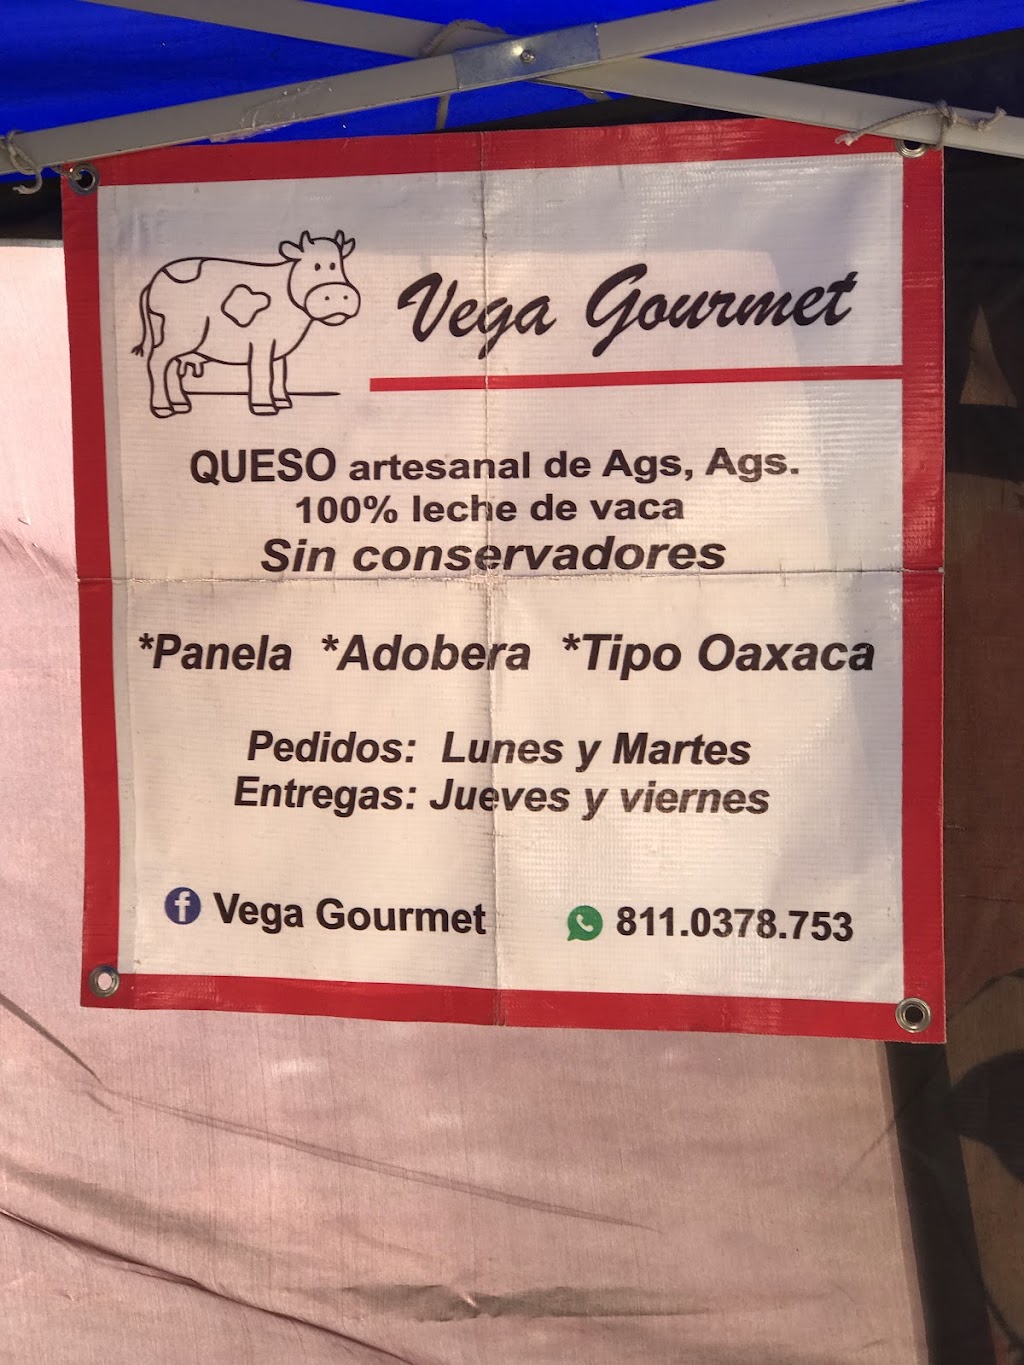 Vega Gourmet
QUESO artesanal de Ags, Ags.
100% leche de vaca
Sin conservadores
*Panela *Adobera *Tipo Oaxaca
Pedidos: Lunes y Martes
Entregas: Jueves y viernes
f Vega Gourmet 811.0378.753